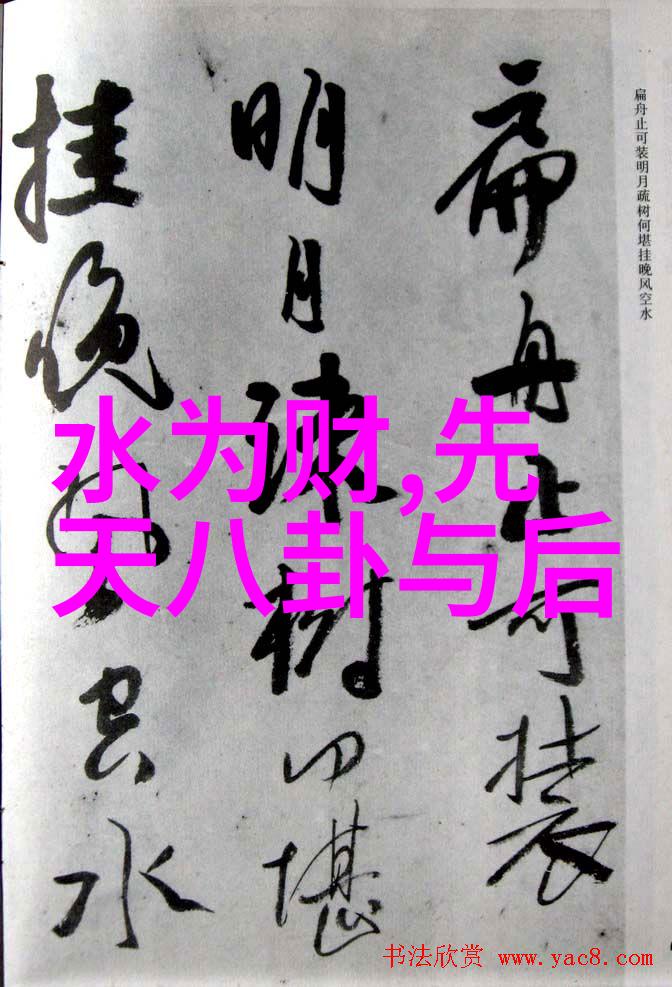 扁舟止可装
明月疏树何堪
挂晚风空水
扁舟止可装明月疏树何堪挂晚风空水
水为财,先
天八卦与后
书法欣赏 www.yac8.com